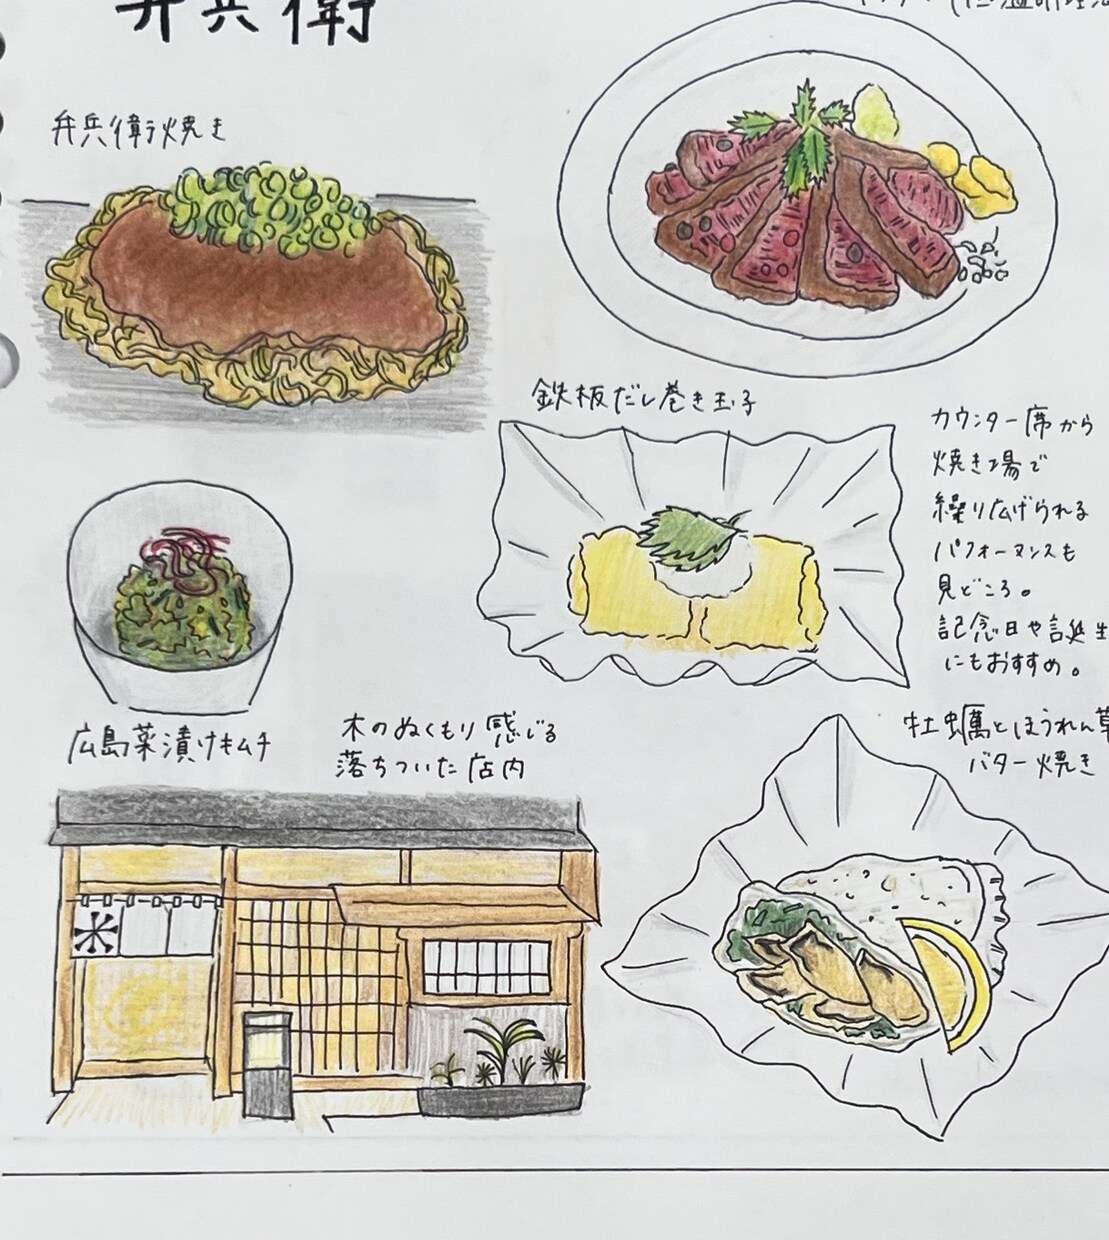 弁兵衛
弁兵衛焼き
鉄板だし巻き玉子
カウンター席から
焼き場で
繰り広げられる
パフォーマンスも
見どころ。
記念日や誕生
にもおすすめ。
広島菜漬けキムチ
木のぬくもり感じる
落ちついた店内
牡蠣とほうれん草
バター焼き